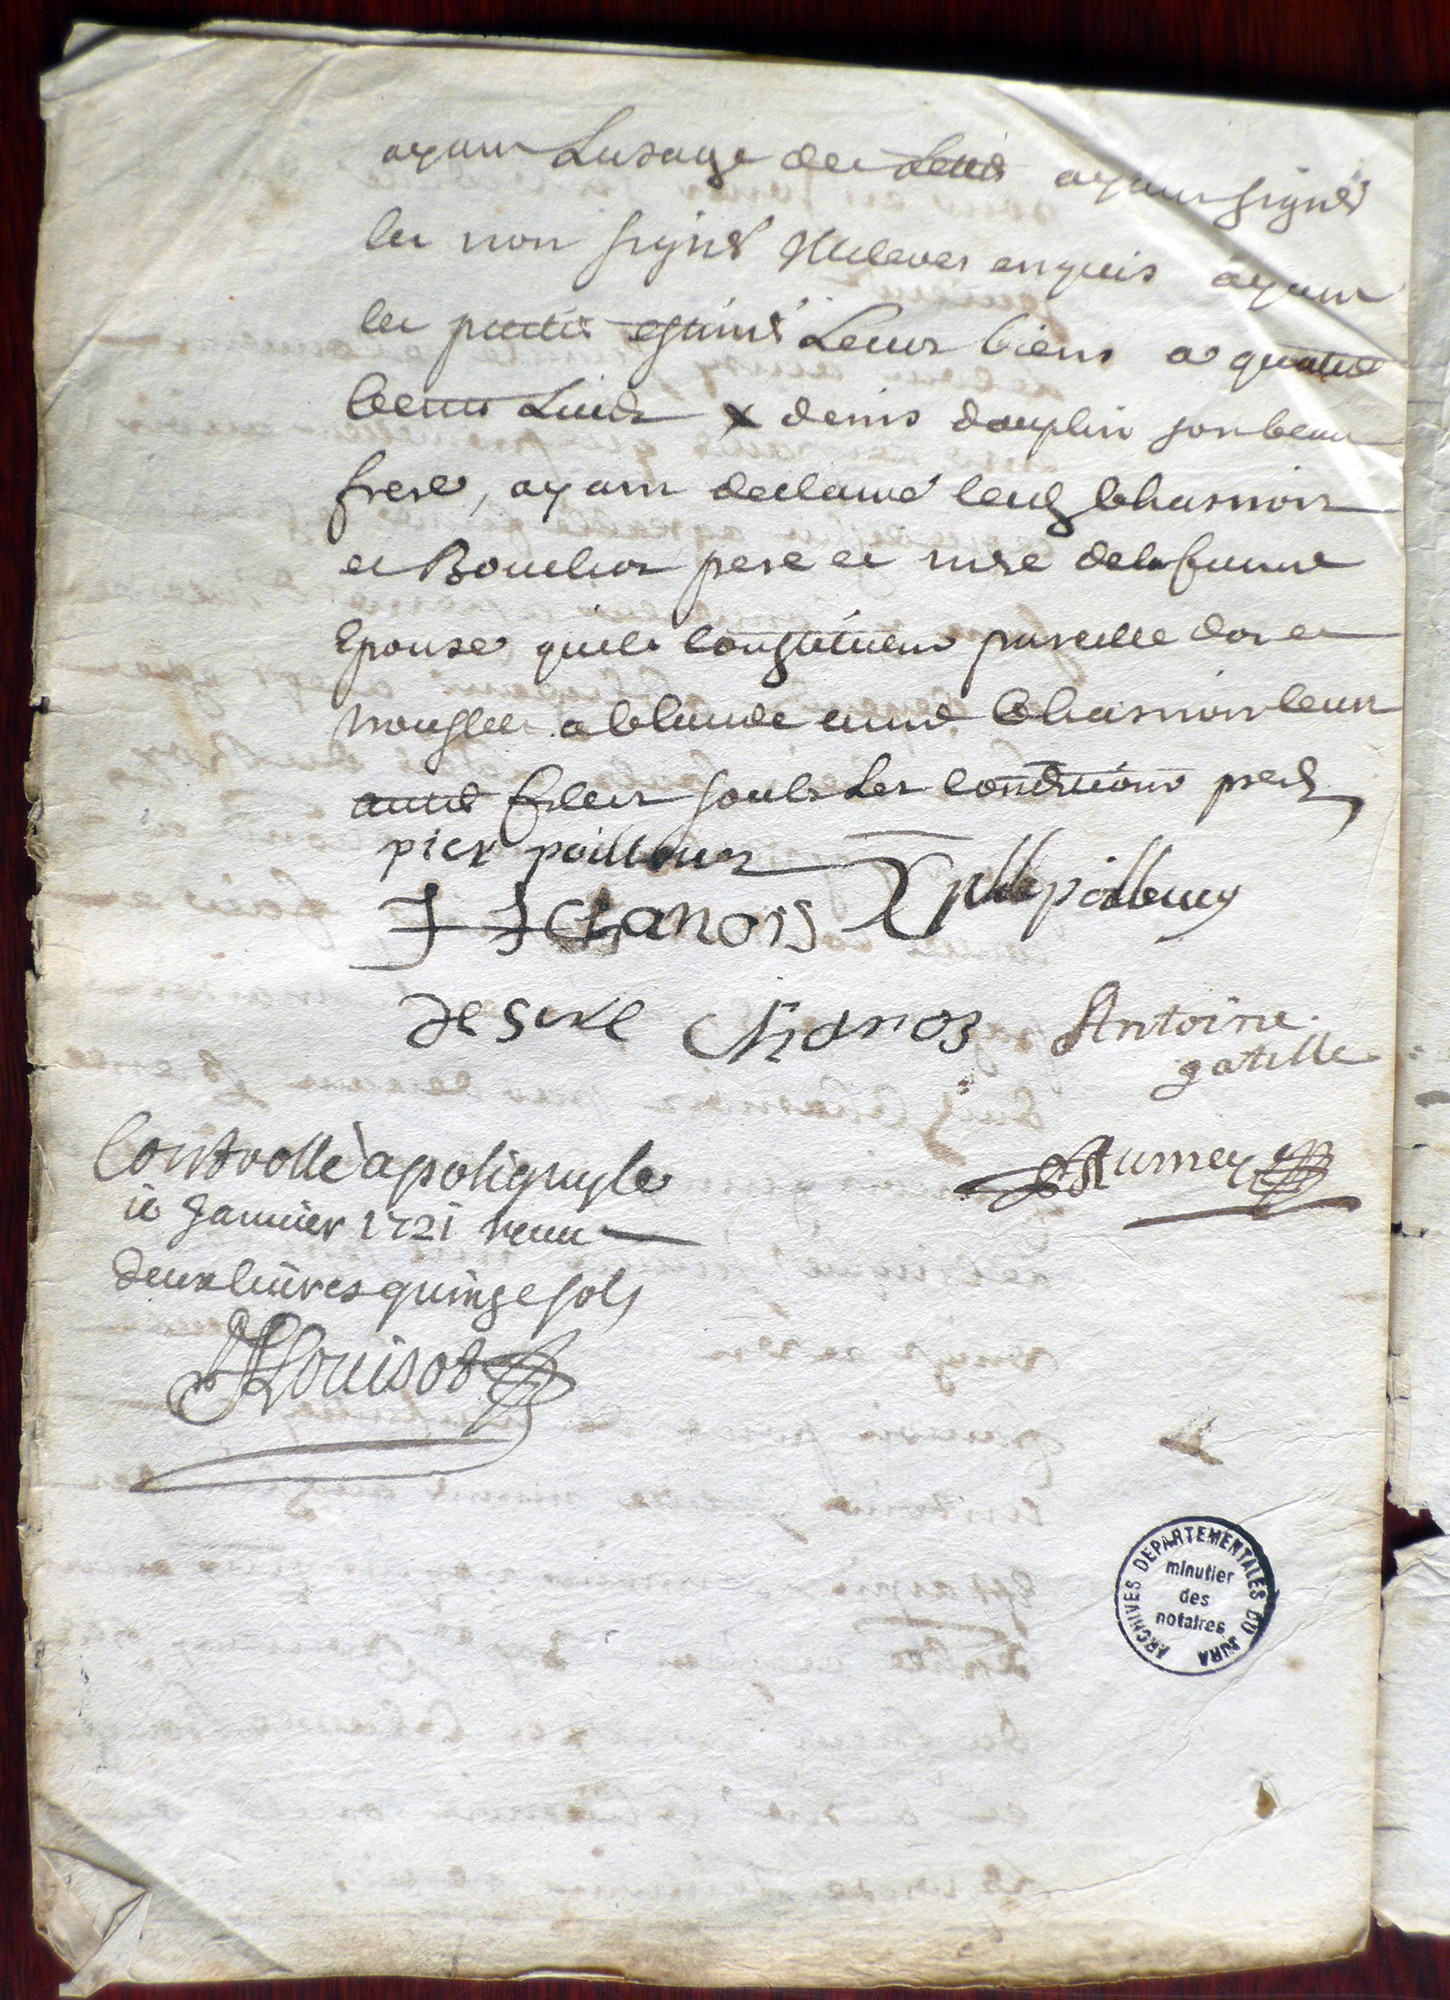 ayant Lusage des Lettres ayant signés
les non signés illiteres enquis ayant
les parties estimé Leurs biens a quatre
cent Livres x denis dauphin son beau
frere, ayant declaré lesd Chasnoir
et Bouchor pere et mere de la future
Epouse quils constituent pareille dot et
trousseL a Claude anne Chasnoir leur
autre fille soubs Les conditions pred
pier paillouz
J J Chanois
desire Chanoz Antoine
gatille
Controllé a poligny le
ie Janvier 1721 receu
deux livres quinze sols
Louisot
ARCHIVES DEPARTEMENTALES DU JURA
minutier
des
notaires